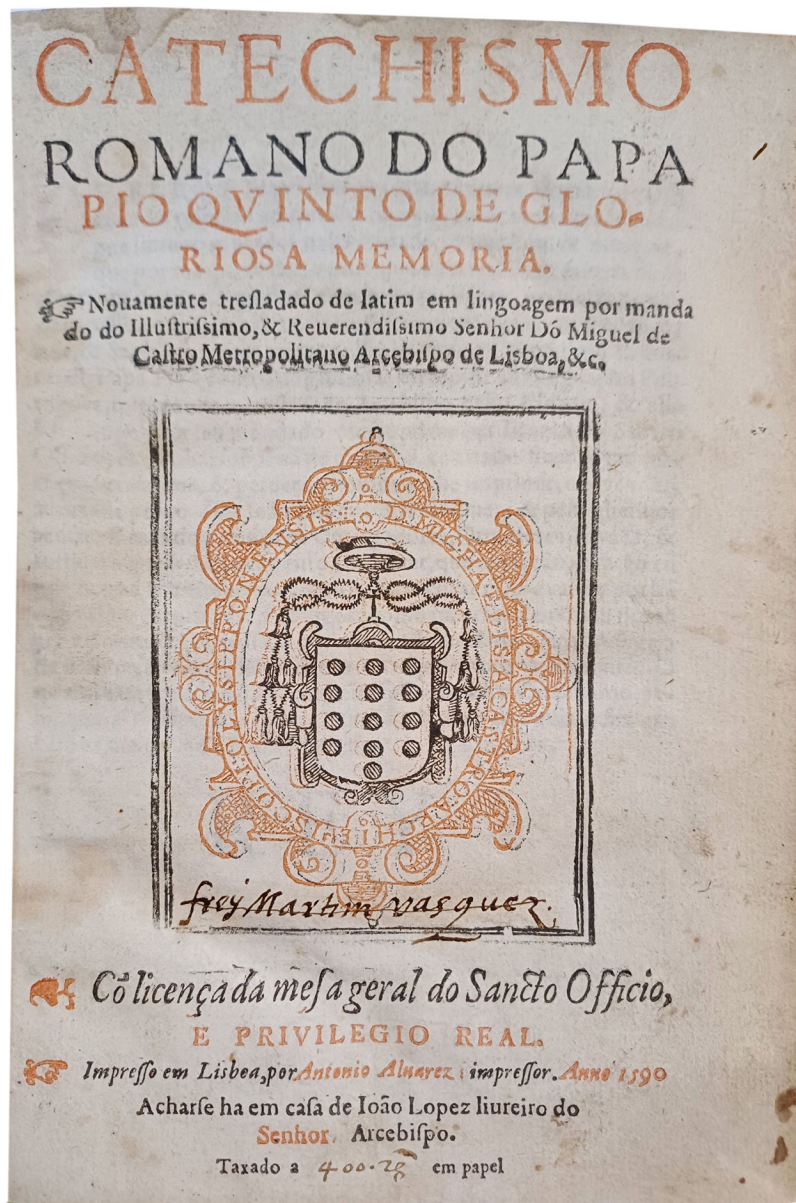 CATECHISMO
ROMANO DO PAPA
PIO QVINTO DE GLO-
RIOSA MEMORIA.
Nouamente tresladado de latim em lingoagem por manda
do do Illustrissimo, & Reuerendissimo Senhor Dõ Miguel de
Castro Metropolitano Arcebispo de Lisboa, &c.
D. MICHAELIS A CASTRO ARCHIEPISCOPI OLYSIPPONENSIS
frej Martim vasquez.
Cõ licença da mesa geral do Sancto Officio,
E PRIVILEGIO REAL.
Impresso em Lisboa, por Antonio Aluarez impressor. Anno 1590
Acharse ha em casa de Ioão Lopez liureiro do
Senhor Arcebispo.
Taxado a 400. em papel